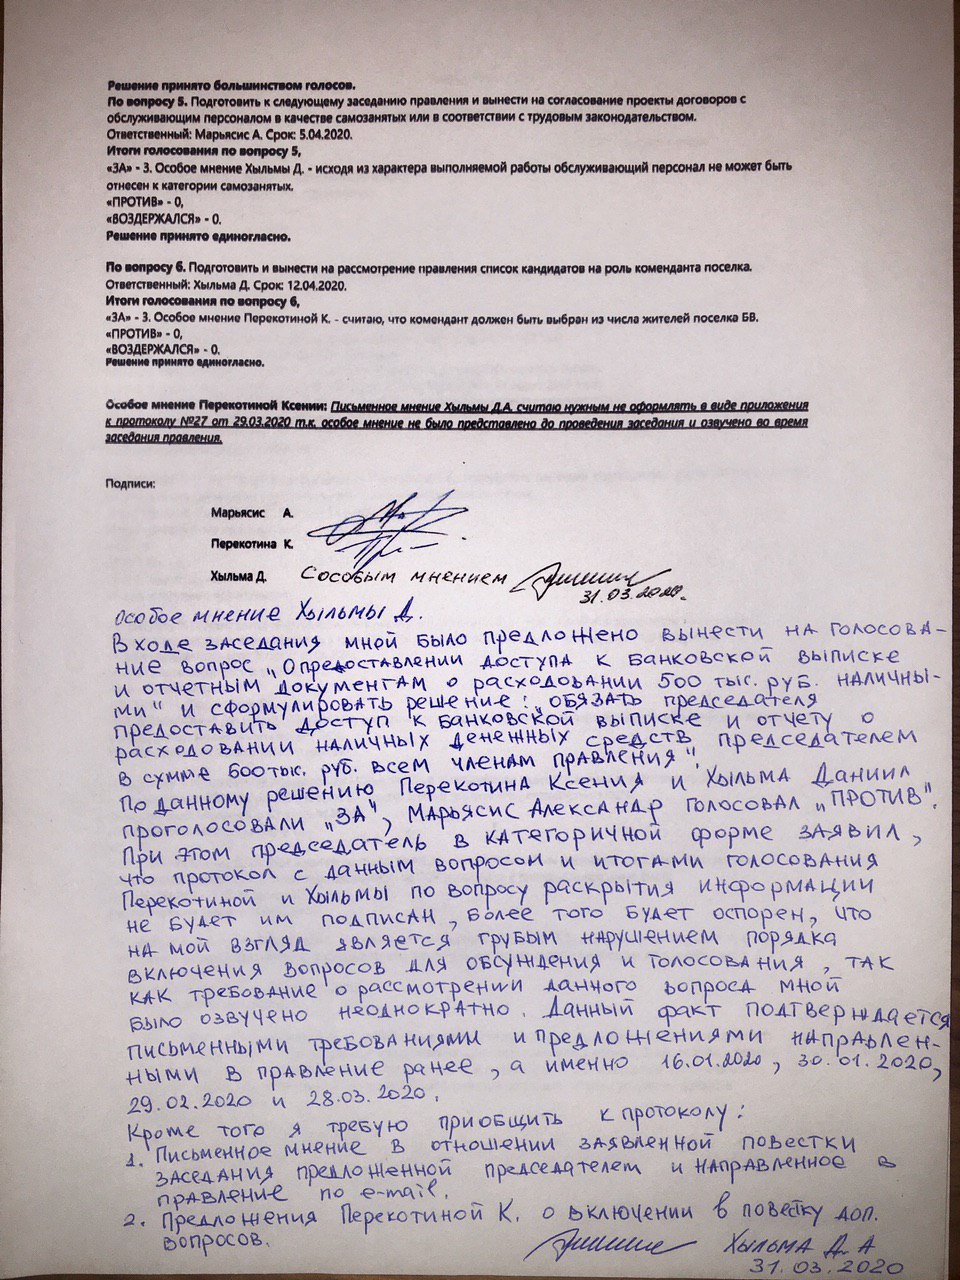 Решение принято большинством голосов.
По вопросу 5. Подготовить к следующему заседанию правления и вынести на согласование проекты договоров с
обслуживающим персоналом в качестве самозанятых или в соответствии с трудовым законодательством.
Ответственный: Марьясис А. Срок: 5.04.2020.
Итоги голосования по вопросу 5,
«ЗА» - 3. Особое мнение Хыльмы Д. - исходя из характера выполняемой работы обслуживающий персонал не может быть
отнесен к категории самозанятых.
«ПРОТИВ» - 0,
«ВОЗДЕРЖАЛСЯ» - 0.
Решение принято единогласно.
По вопросу 6. Подготовить и вынести на рассмотрение правления список кандидатов на роль коменданта поселка.
Ответственный: Хыльма Д. Срок: 12.04.2020.
Итоги голосования по вопросу 6,
«ЗА» - 3. Особое мнение Перекотиной К. - считаю, что комендант должен быть выбран из числа жителей поселка БВ.
«ПРОТИВ» - 0,
«ВОЗДЕРЖАЛСЯ» - 0.
Решение принято единогласно.
Особое мнение Перекотиной Ксении: Письменное мнение Хыльмы Д.А. считаю нужным не оформлять в виде приложения
к протоколу №27 от 29.03.2020 т.к. особое мнение не было представлено до проведения заседания и озвучено во время
заседания правления.
Подписи:
Марьясис А.
Перекотина К.
Хыльма Д. С особым мнением
31.03.2020.
Особое мнение Хыльмы Д.
В ходе заседания мной было предложено вынести на голосова-
ние вопрос „О предоставлении доступа к банковской выписке
и отчетным документам о расходовании 500 тыс. руб. наличны-
ми" и сформулировать решение: „обязать председателя
предоставить доступ к банковской выписке и отчету о
расходовании наличных денежных средств председателем
в сумме 600тыс. руб. всем членам правления".
По данному решению Перекотина Ксения и Хыльма Даниил
проголосовали „ЗА", Марьясис Александр голосовал „ПРОТИВ".
При этом председатель в категоричной форме заявил,
что протокол с данным вопросом и итогами голосования
Перекотиной и Хыльмы по вопросу раскрытия информации
не будет им подписан, более того будет оспорен, что
на мой взгляд является грубым нарушением порядка
включения вопросов для обсуждения и голосования, так
как требование о рассмотрении данного вопроса мной
было озвучено неоднократно. Данный факт подтверждается
письменными требованиями и предложениями направлен-
ными в правление ранее, а именно 16.01.2020, 30.01.2020,
29.02.2020 и 28.03.2020.
Кроме того я требую приобщить к протоколу:
1. Письменное мнение в отношении заявленной повестки
заседания предложенной председателем и направленное в
правление по e-mail.
2. Предложения Перекотиной К. о включении в повестку доп.
вопросов.
Хыльма Д.А
31.03.2020